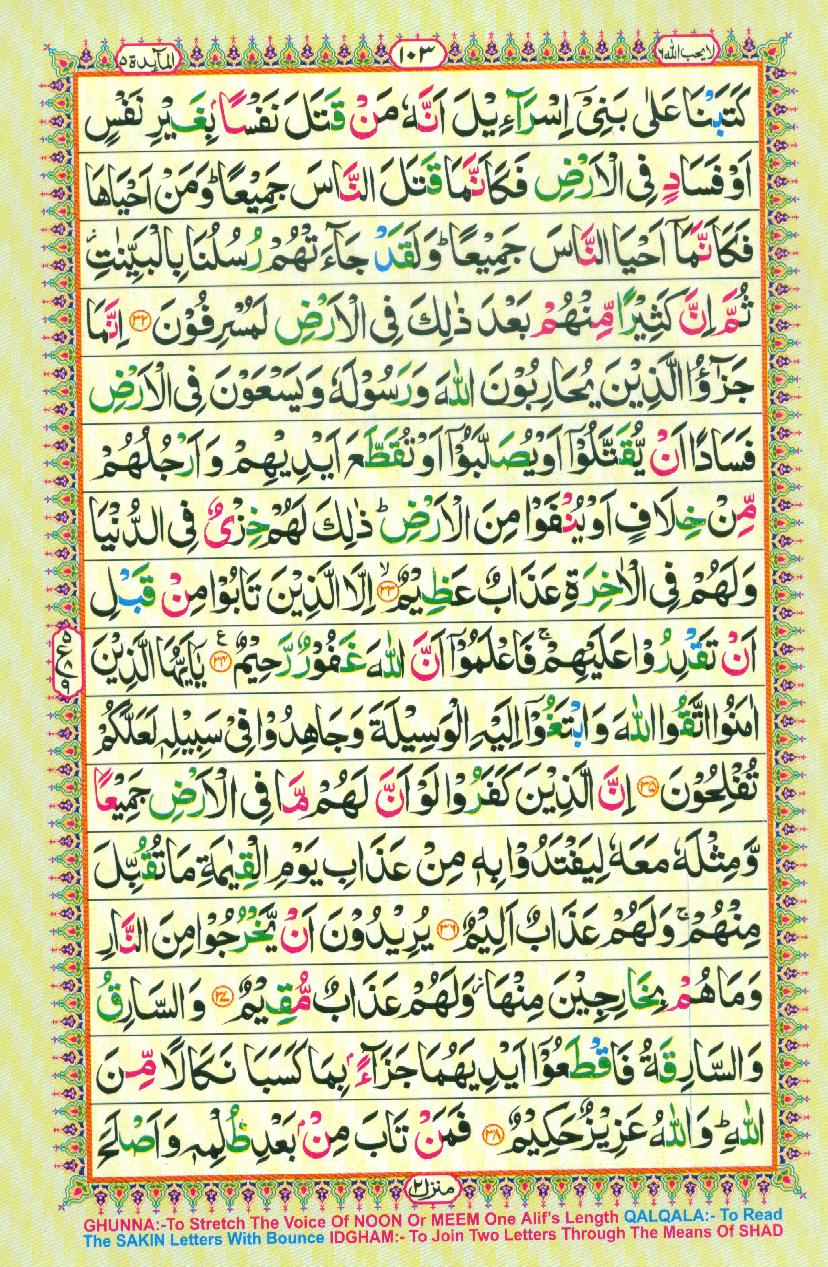 لا يحب الله ٦
١٠٣
المآئدة ٥
كَتَبْنَا عَلٰى بَنِيْۤ اِسْرَآءِيْلَ اَنَّهٗ مَنْ قَتَلَ نَفْسًۢا بِغَيْرِ نَفْسٍ
اَوْ فَسَادٍ فِى الْاَرْضِ فَكَاَنَّمَا قَتَلَ النَّاسَ جَمِيْعًاؕ وَمَنْ اَحْيَاهَا
فَكَاَنَّمَاۤ اَحْيَا النَّاسَ جَمِيْعًاؕ وَلَقَدْ جَآءَتْهُمْ رُسُلُنَا بِالْبَيِّنٰتِؗ
ثُمَّ اِنَّ كَثِيْرًا مِّنْهُمْ بَعْدَ ذٰلِكَ فِى الْاَرْضِ لَمُسْرِفُوْنَ ٣٢ اِنَّمَا
جَزٰٓؤُا الَّذِيْنَ يُحَارِبُوْنَ اللّٰهَ وَرَسُوْلَهٗ وَيَسْعَوْنَ فِى الْاَرْضِ
فَسَادًا اَنْ يُّقَتَّلُوْۤا اَوْ يُصَلَّبُوْۤا اَوْ تُقَطَّعَ اَيْدِيْهِمْ وَاَرْجُلُهُمْ
مِّنْ خِلَافٍ اَوْ يُنْفَوْا مِنَ الْاَرْضِؕ ذٰلِكَ لَهُمْ خِزْىٌ فِى الدُّنْيَا
وَلَهُمْ فِى الْاٰخِرَةِ عَذَابٌ عَظِيْمٌۙ ٣٣ اِلَّا الَّذِيْنَ تَابُوْا مِنْ قَبْلِ
اَنْ تَقْدِرُوْا عَلَيْهِمْۚ فَاعْلَمُوْۤا اَنَّ اللّٰهَ غَفُوْرٌ رَّحِيْمٌ ٣٤ ع يٰۤاَيُّهَا الَّذِيْنَ
٥
ع
٨
٩
اٰمَنُوا اتَّقُوا اللّٰهَ وَابْتَغُوْۤا اِلَيْهِ الْوَسِيْلَةَ وَجَاهِدُوْا فِيْ سَبِيْلِهٖ لَعَلَّكُمْ
تُفْلِحُوْنَ ٣٥ اِنَّ الَّذِيْنَ كَفَرُوْا لَوْ اَنَّ لَهُمْ مَّا فِى الْاَرْضِ جَمِيْعًا
وَّمِثْلَهٗ مَعَهٗ لِيَفْتَدُوْا بِهٖ مِنْ عَذَابِ يَوْمِ الْقِيٰمَةِ مَا تُقُبِّلَ
مِنْهُمْۚ وَلَهُمْ عَذَابٌ اَلِيْمٌ ٣٦ يُرِيْدُوْنَ اَنْ يَّخْرُجُوْا مِنَ النَّارِ
وَمَا هُمْ بِخَارِجِيْنَ مِنْهَاؗ وَلَهُمْ عَذَابٌ مُّقِيْمٌ ٣٧ وَالسَّارِقُ
وَالسَّارِقَةُ فَاقْطَعُوْۤا اَيْدِيَهُمَا جَزَآءًۢ بِمَا كَسَبَا نَكَالًا مِّنَ
اللّٰهِؕ وَاللّٰهُ عَزِيْزٌ حَكِيْمٌ ٣٨ فَمَنْ تَابَ مِنْۢ بَعْدِ ظُلْمِهٖ وَاَصْلَحَ
منزل ٢
GHUNNA:-To Stretch The Voice Of NOON Or MEEM One Alif's Length QALQALA:- To Read
The SAKIN Letters With Bounce IDGHAM:- To Join Two Letters Through The Means Of SHAD